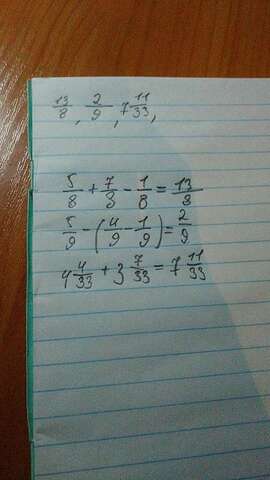 13/8, 2/9, 7 11/33,
5/8 + 7/8 - 1/8 = 13/8
5/9 - (4/9 - 1/9) = 2/9
4 4/33 + 3 7/33 = 7 11/33